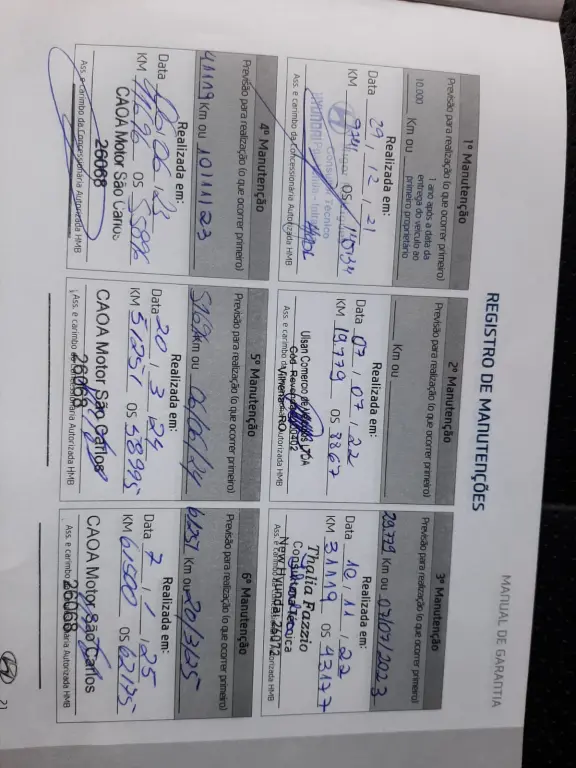 MANUAL DE GARANTIA
REGISTRO DE MANUTENÇÕES
1ª Manutenção
Previsão para realização (o que ocorrer primeiro)
10.000 Km ou
1 ano após a data da
entrega do veículo ao
primeiro proprietário
Realizada em:
Data 29 / 12 / 21
KM OS
Consultor Técnico
Ass. e carimbo da Concessionária Autorizada HMB
2ª Manutenção
Previsão para realização (o que ocorrer primeiro)
Km ou
Realizada em:
Data 07 / 07 / 22
KM 19.779 OS 8867
Ulsan Comercio de LTDA
Vilhena - RO
Ass. e carimbo da Autorizada HMB
3ª Manutenção
Previsão para realização (o que ocorrer primeiro)
29.779 Km ou 07/07/2023
Realizada em:
Data 10 / 11 / 22
KM 31119 OS 43177
Thalia Fazzio
Consultora Técnica
New Hyundai 26072
Ass. e carimbo da Autorizada HMB
4ª Manutenção
Previsão para realização (o que ocorrer primeiro)
41119 Km ou 10/11/23
Realizada em:
Data 16/06/23
KM 41696 OS 55896
CAOA Motor São Carlos
26068
Ass. e carimbo da Concessionária Autorizada HMB
5ª Manutenção
Previsão para realização (o que ocorrer primeiro)
Km ou 06/06/24
Realizada em:
Data 20 / 3 / 24
KM 51251 OS 58995
CAOA Motor São Carlos
26068
Ass. e carimbo da Concessionária Autorizada HMB
6ª Manutenção
Previsão para realização (o que ocorrer primeiro)
61251 Km ou 20/3/25
Realizada em:
Data 7 / 1 / 25
KM 61500 OS 62175
CAOA Motor São Carlos
26068
Ass. e carimbo da Concessionária Autorizada HMB
21